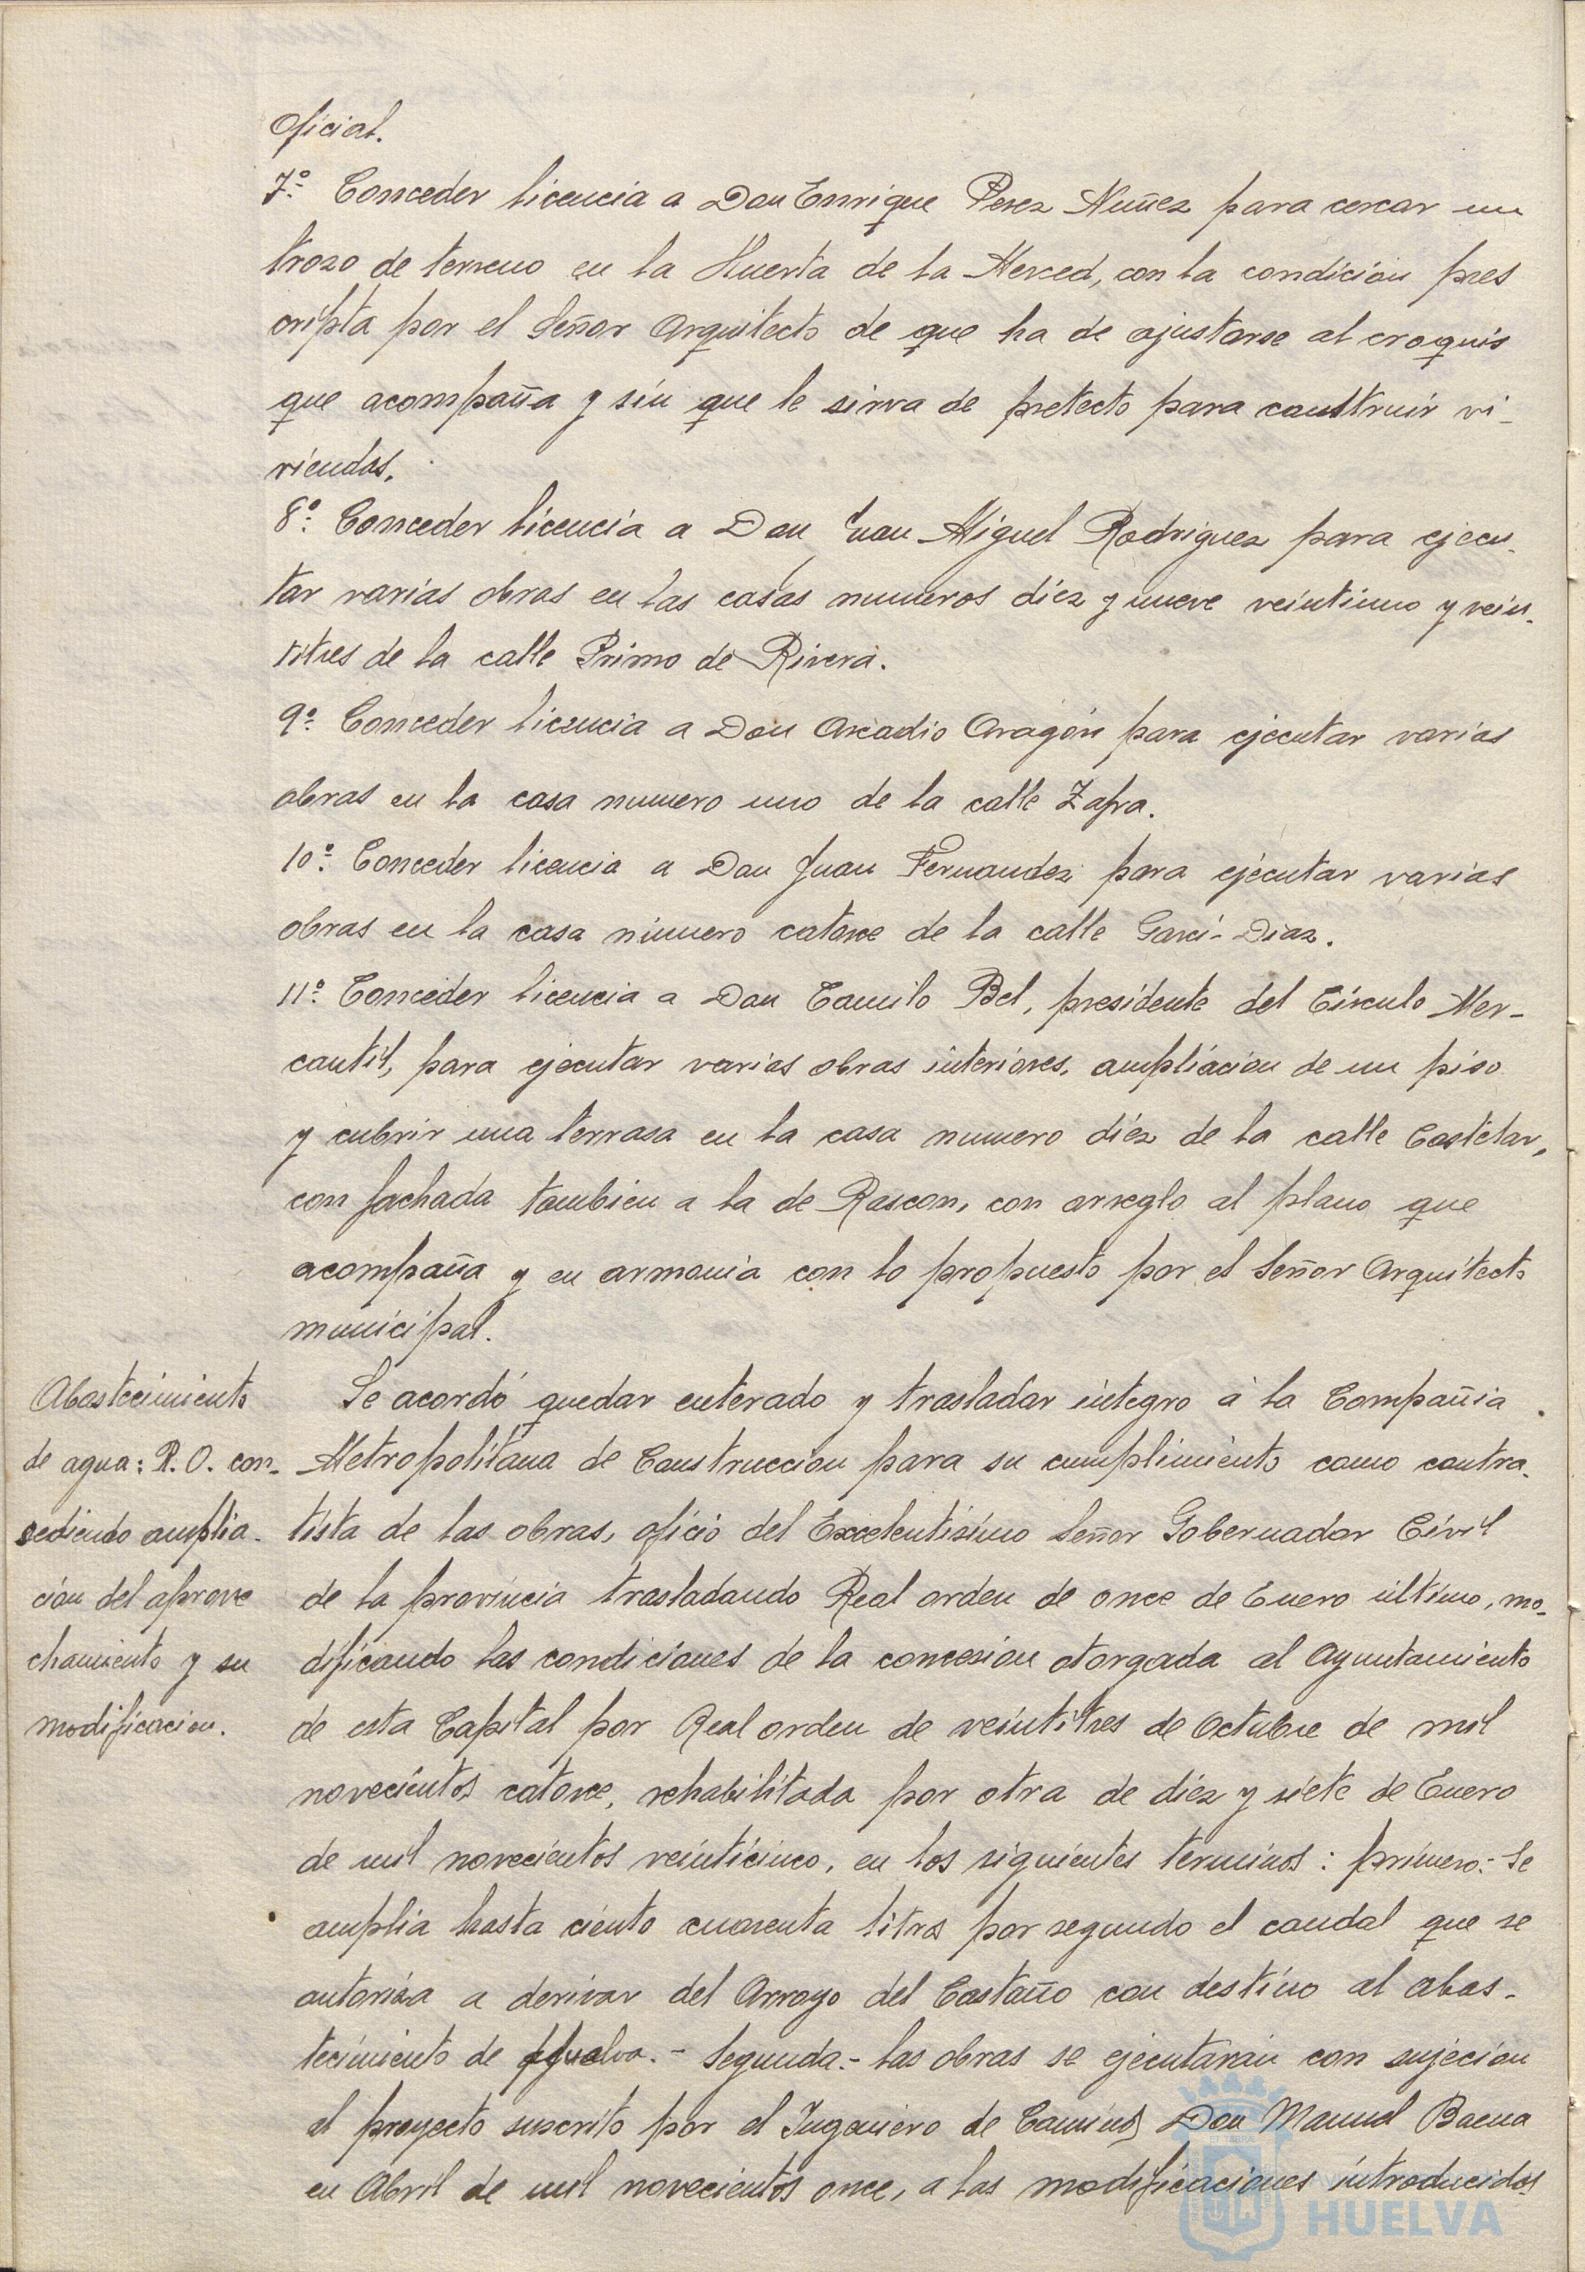 Oficial.
7º- Conceder licencia a Don Enrique Perez Nuñez para cercar un
trozo de terreno en la Huerta de la Merced, con la condición pres
cripta por el Señor Arquitecto de que ha de ajustarse al croquis
que acompaña y sin que le sirva de pretecto para construir vi-
viendas.
8º- Conceder licencia a Don Juan Miguel Rodriguez para ejecu-
tar varias obras en las casas numeros diez y nueve veintiuno y vein-
titres de la calle Primo de Rivera.
9º- Conceder licencia a Don Arcadio Aragón para ejecutar varias
obras en la casa numero uno de la calle Zafra.
10º- Conceder licencia a Don Juan Fernandez para ejecutar varias
obras en la casa número catorce de la calle Garci-Diaz.
11º- Conceder licencia a Don Camilo Bel, presidente del Círculo Mer-
cantil, para ejecutar varias obras interiores, ampliacion de un piso
y cubrir una terrasa en la casa numero diez de la calle Castelar,
con fachada tambien a la de Rascon, con arreglo al plano que
acompaña y en armonia con lo propuesto por el Señor Arquitecto
municipal.
Abastecimiento
de agua: R.O. con-
cediendo amplia-
ción del aprove
chamiento y su
modificacion.
Se acordó quedar enterado y trasladar integro á la Compañia
Metropolitana de Construccion para su cumplimiento como contra-
tista de las obras, oficio del Excelentisimo Señor Gobernador Civil
de la provincia trasladando Real orden de once de Enero último, mo-
dificando las condiciones de la concesion otorgada al Ayuntamiento
de esta Capital por Real orden de veintitres de Octubre de mil
novecientos catorce, rehabilitada por otra de diez y siete de Enero
de mil novecientos veinticinco, en los siguientes terminos: primero:- Se
amplia hasta ciento cuarenta litros por segundo el caudal que se
autoriza a derivar del Arroyo del Castaño con destino al abas-
tecimiento de Huelva.- Segunda.- las obras se ejecutarán con sujecion
al proyecto suscrito por el Ingeniero de Caminos Don Manuel Baena
en Abril de mil novecientos once, a las modificaciones introducidas
HUELVA